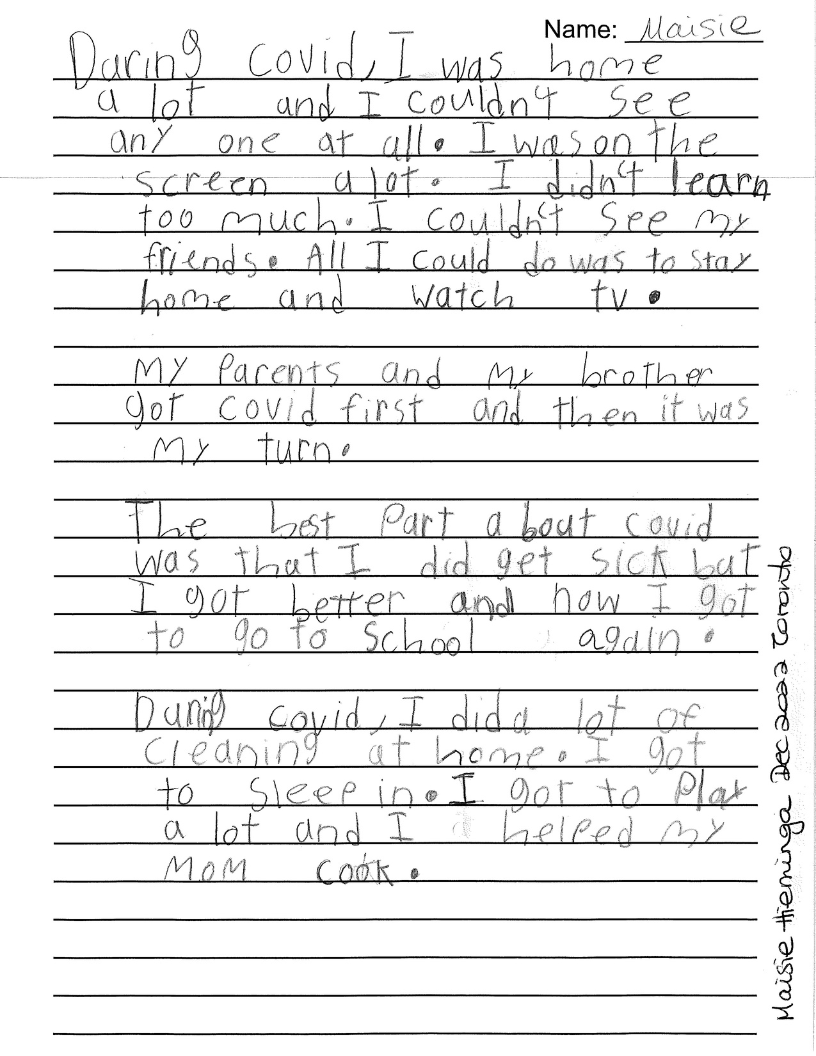 Name: Maisie
During covid, I was home
a lot and I couldn't see
any one at all. I was on the
screen a lot. I didn't learn
too much. I couldn't see my
friends. All I could do was to stay
home and watch tv.
My Parents and my brother
got covid first and then it was
my turn.
The best Part about covid
was that I did get sick but
I got better and now I got
to go to School again.
During covid, I did a lot of
cleaning at home. I got
to sleep in. I got to Play
a lot and I helped my
MoM cook.
Maisie Hieminga Dec 2022 Toronto